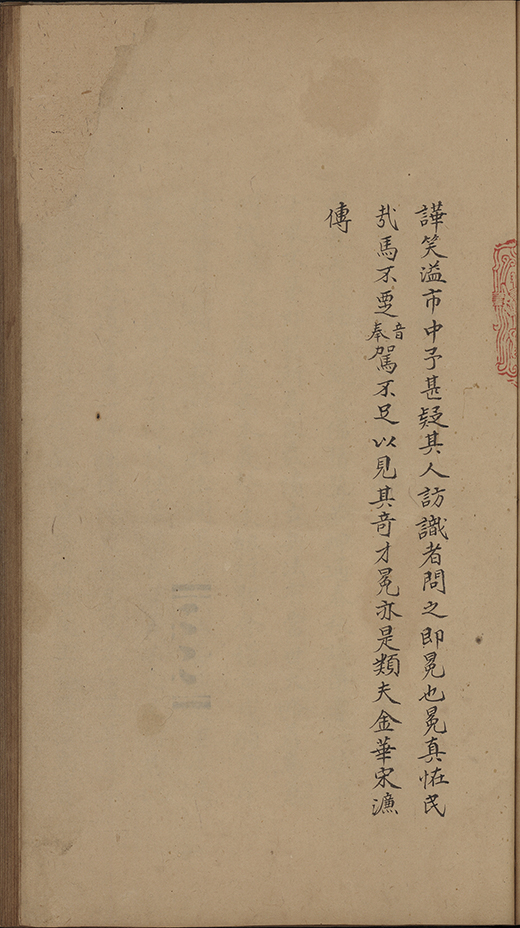 譁笑溢市中予甚疑其人訪識者問之即冕也冕真恠民
哉馬不覂音奉駕不足以見其竒才冕亦是類夫金華宋濂
傳